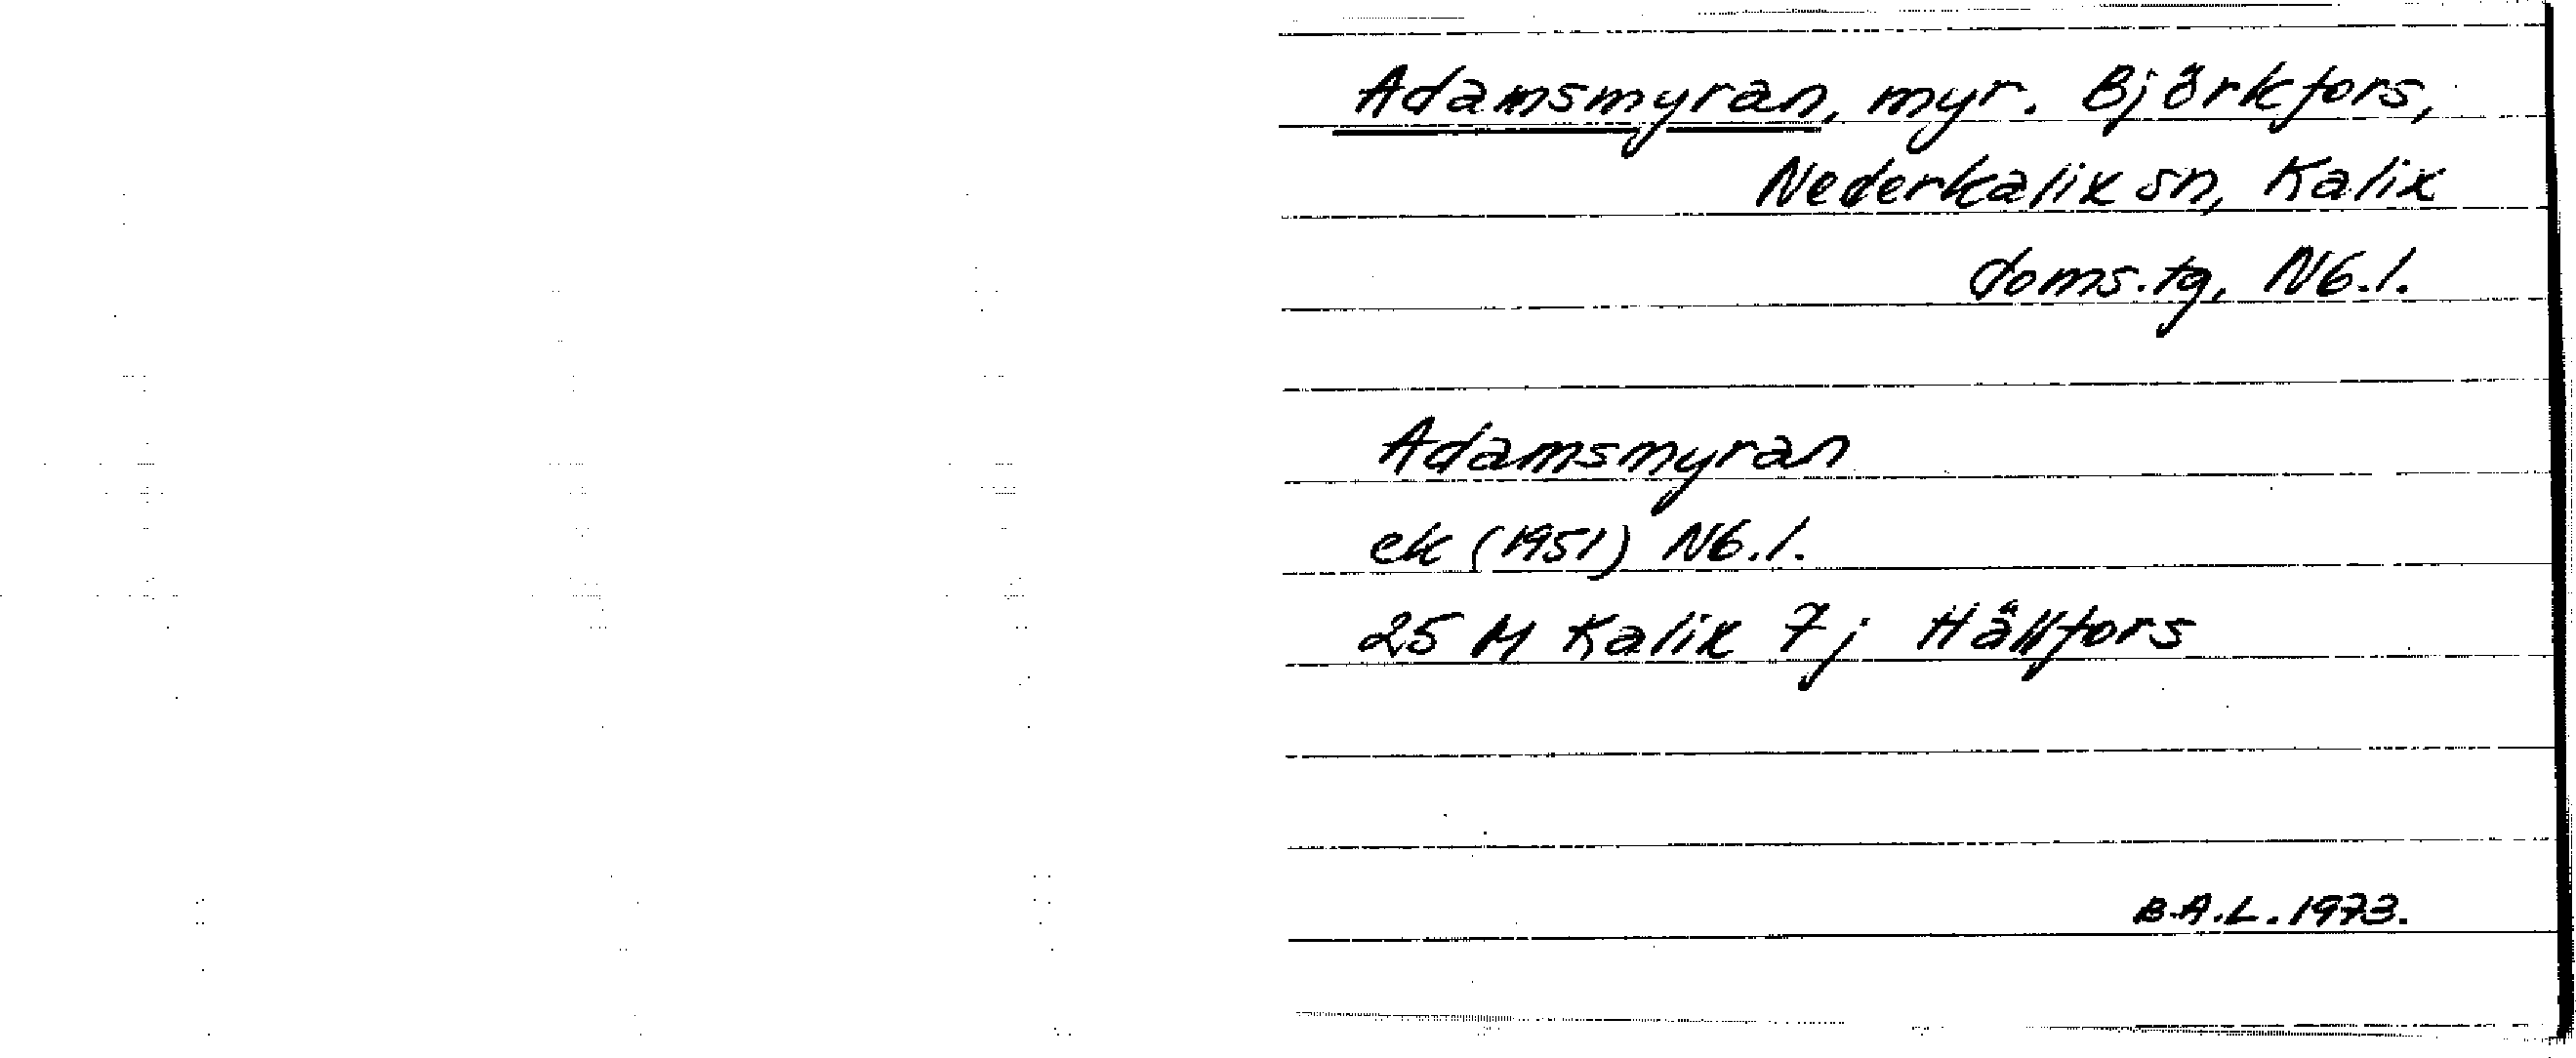 Adamsmyran, myr. Björkfors,
Nederkalix sn, Kalix
doms.tg, Nb.l.
Adamsmyran
ek (1951) Nb.l.
25 M Kalix 7j Hällfors
B.A.L. 1973.